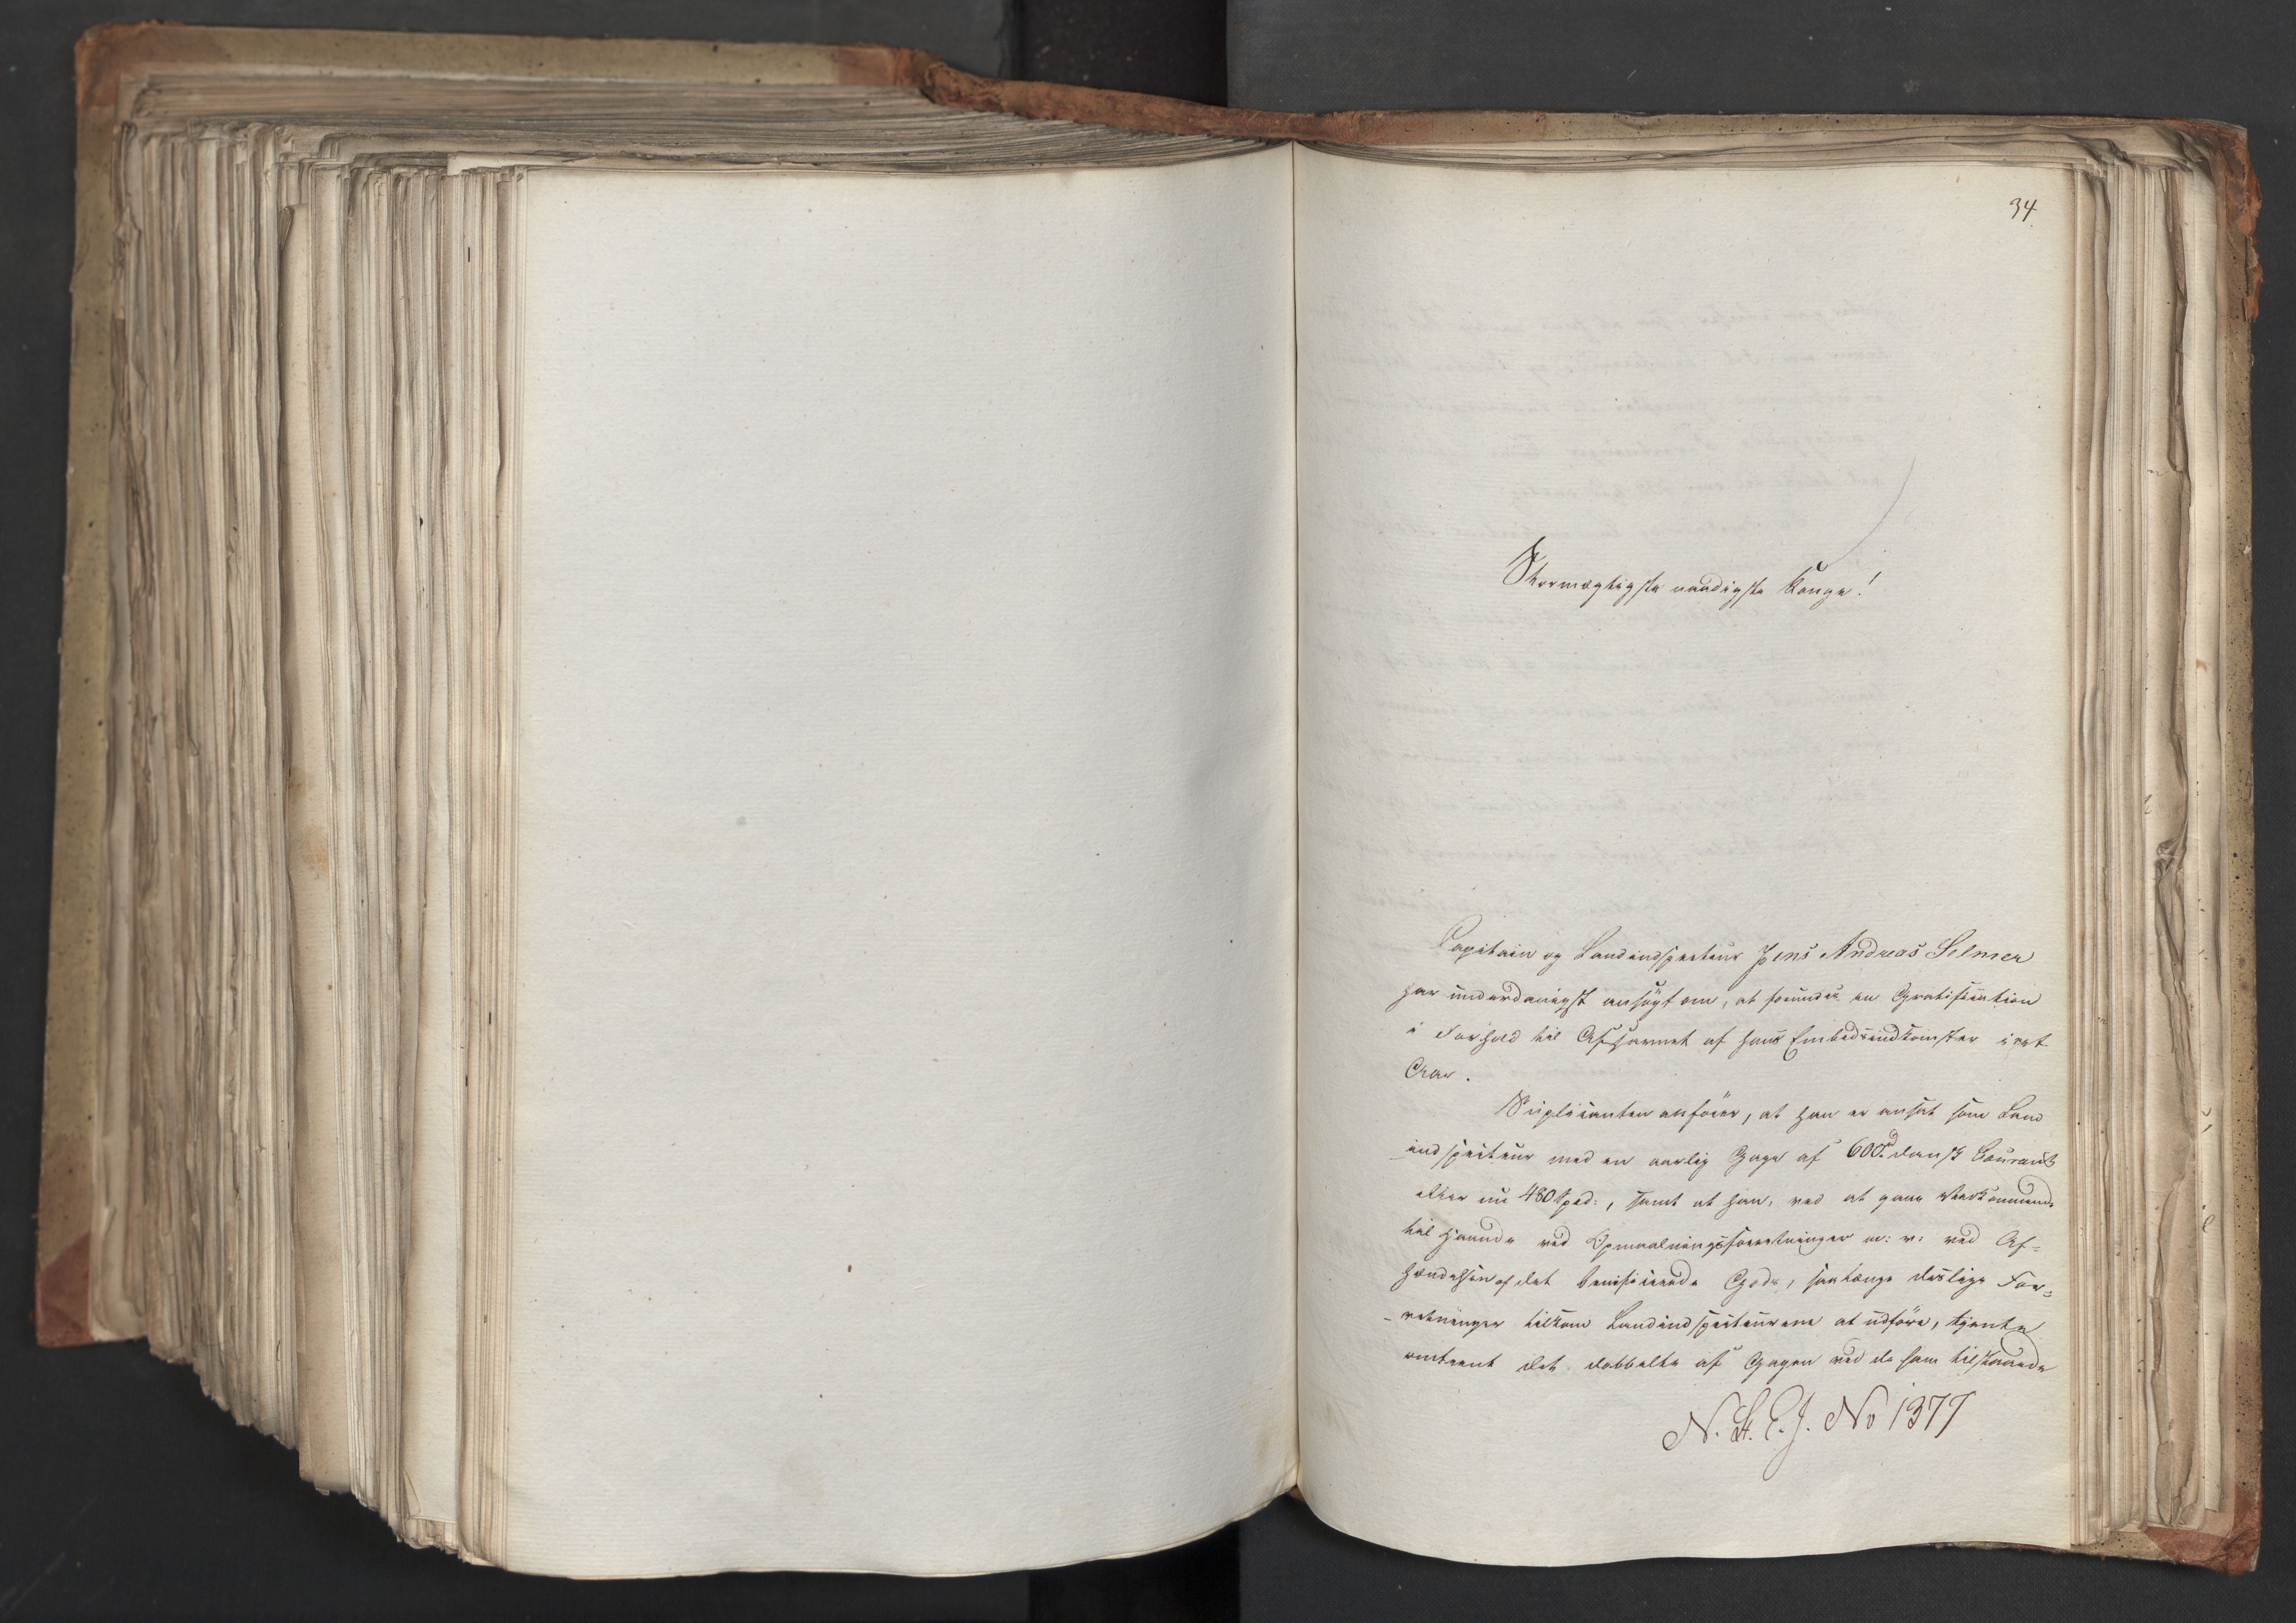 34.
Stormægtigste naadigste Konge!
Capitain og Landinspecteur Jens Andreas Selmer
har underdanigst ansøgt om, at forundes en Gratification
i Forhold til Afsavnet af hans Embedsindkomster i et
Aar.
Suplicanten anfører, at han er ansat som Land
inspecteur med en aarlig Gage af 600rd dansk Courant
eller nu 480 Spd:, samt at han, ved at gaae Vedkommende
til Haande ved Opmaalningsforretninger m: v: ved Af=
hændelsen af det beneficerede Gods, saalænge deslige For=
retninger tilkom Landinspecteurerne at udføre, tjente
omtrent det dobbelte af Gagen ved de ham tilstaaede
N. St. E. J. No 1377